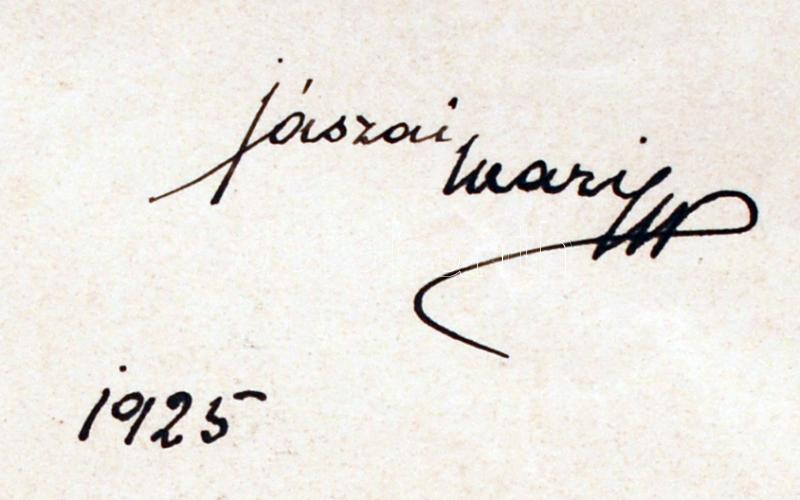 Jászai
Mari
1925